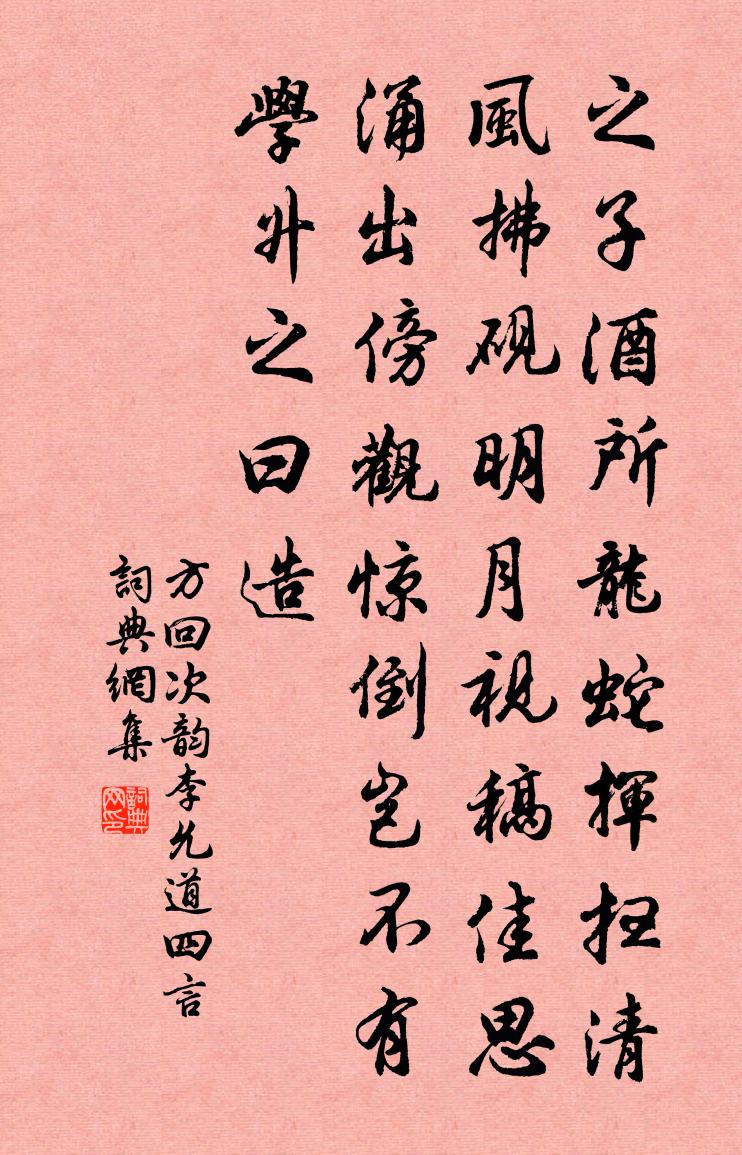 之子酒所龍蛇揮抂清
風拂硯明月視稿佳思
涌出傍觀惊倒豈不有
學升之曰造
方回次韵李允道四言
詞典網集
詞典网印